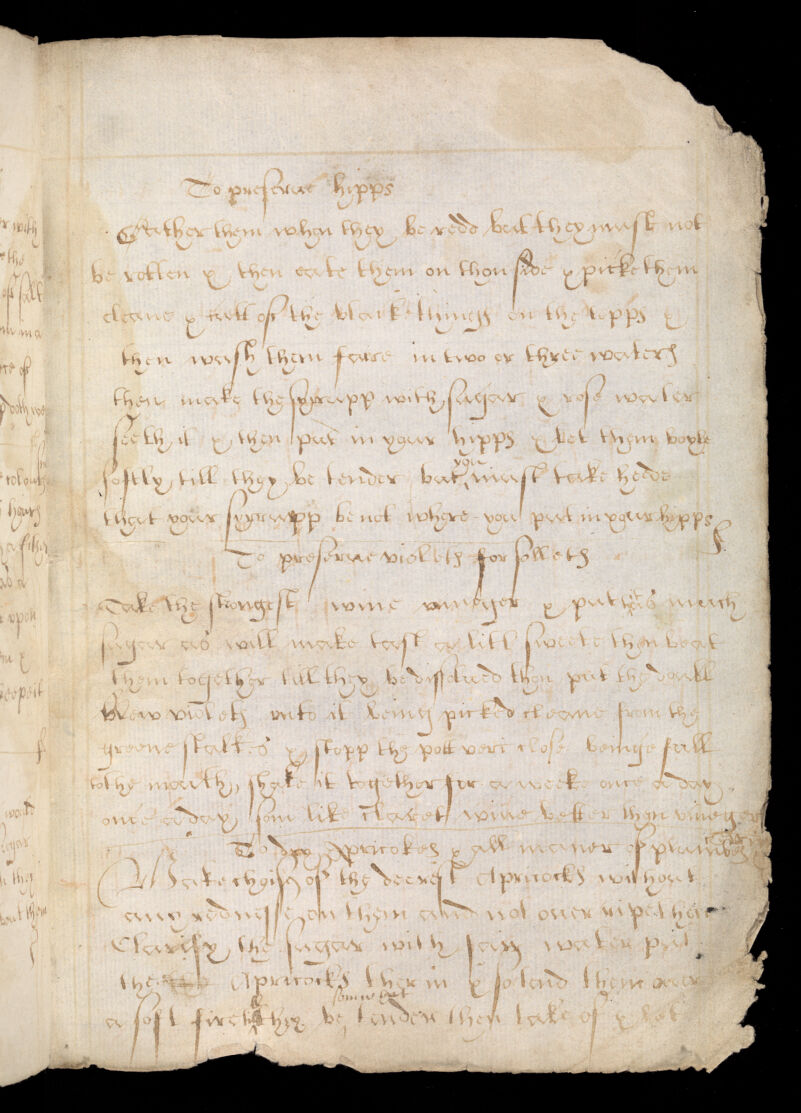 To preserue hipps
Gather them when they be redd but they must not
be rotten & then cutt them on thon side & picke them
cleane & cutt of the black things on the topps &
then wash them faire in two or three waters
then make the syrrupp with sugar & rose water
seeth it & then put in your hipps & let them boyle
softly till they be tender but you must take heede
that your syrrupp be not where you put in your hipps
To preserue violets for sallets
Take the strongest wine vineger & put as much
sugar as will make tast a litl sweete then beat
them together till they be dissolued then put the
blew violets into it being picked cleane from the
greene stalkes & stopp the pott veri close beinge full
to the mouth, shake it together for a weeke once a day
once a day som like claret wine better then vineger
To dry Apricokes & all maner of plumbs
Make choise of the Apricocks without
any rednesse on them and not ouer ripe then
Clarify the sugar with fair water put
the Apricocks therin & so lend them ouer
a soft fire they be somwhat tender then take of & let
with
the
of salt
of
hours
a
upon
&
keepeit
would
sugar
they